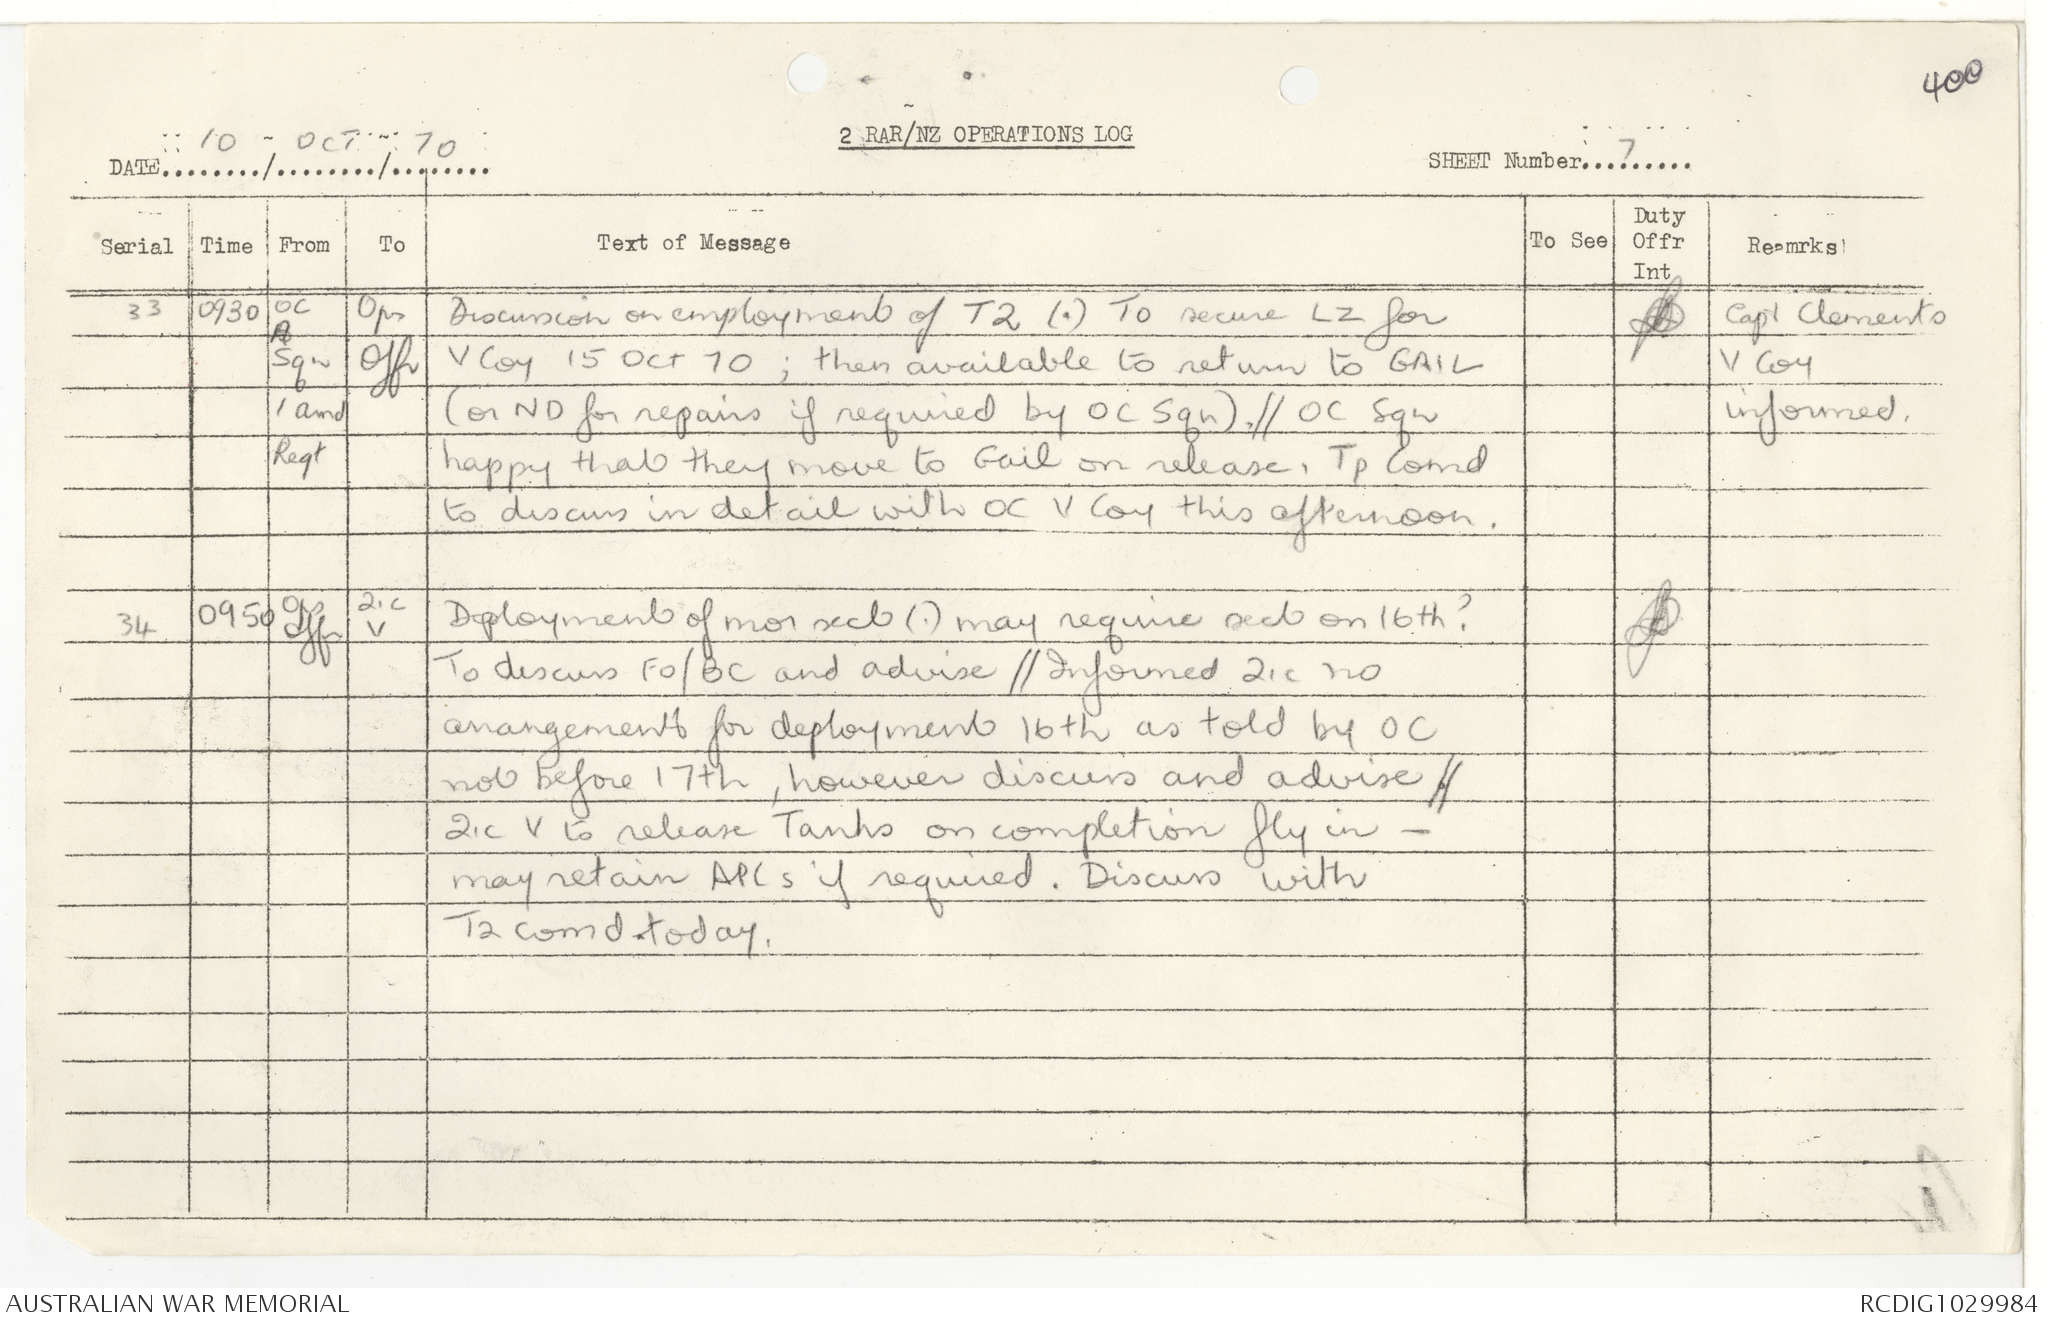 400
10 - OCT - 70
2 RAR/NZ OPERATIONS LOG
DATE......../......../........
SHEET Number...7......
Serial Time From To Text of Message To See Duty Offr Int Reamrks
33 0930 OC Ops Discussion on employment of T2 (.) To secure LZ for Capt Clements
A
Sqn Offr V Coy 15 Oct 70 ; then available to return to GAIL V Coy
1 amd (or ND for repairs if required by OC Sqn). // OC Sqn informed.
Regt happy that they move to Gail on release. Tp Comd
to discuss in detail with OC V Coy this afternoon.
34 0950 Ops Offr 2ic V Deployment of mor sect (.) may require sect on 16th?
To discuss FO/BC and advise // Informed 2ic no
arrangements for deployment 16th as told by OC
not before 17th, however discuss and advise //
2ic V to release Tanks on completion fly in -
may retain APCs if required. Discuss with
T2 comd today.
AUSTRALIAN WAR MEMORIAL
RCDIG1029984